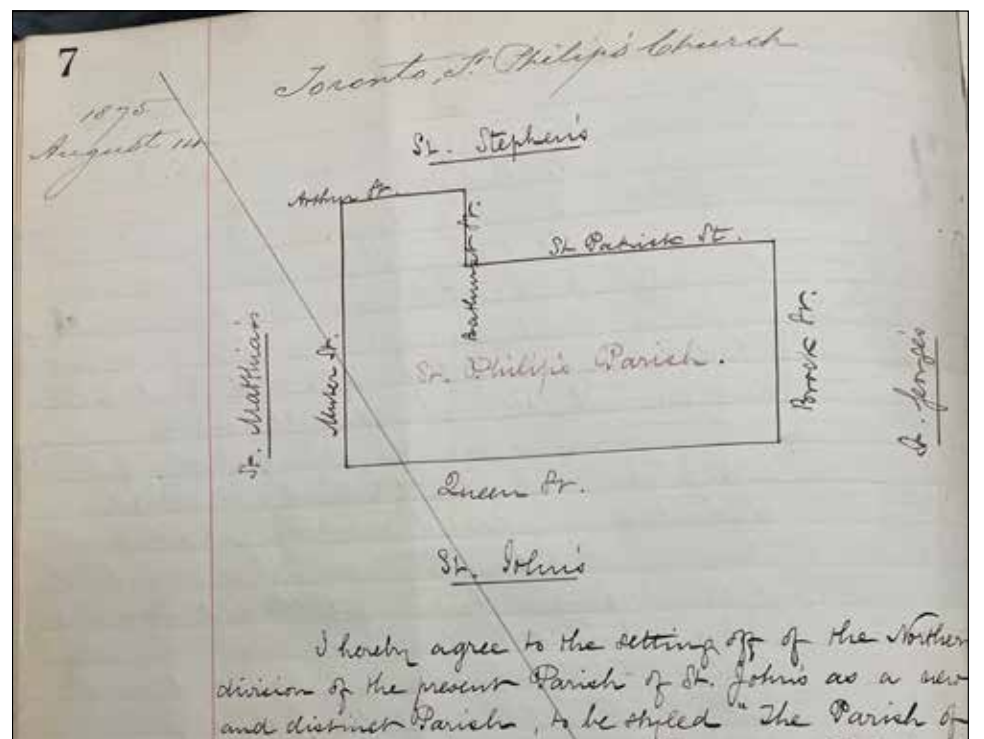 7
Toronto, St. Philip's Church
1875
August 14
St. Stephen's
Arthur St.
Bathurst St.
St. Patrick St.
St. Matthias
St.
St. Philip's Parish.
Brock St.
St. George's
Queen St.
St. John's
I hereby agree to the setting off of the Northern
division of the present Parish of St. John's as a new
and distinct Parish, to be styled "The Parish of